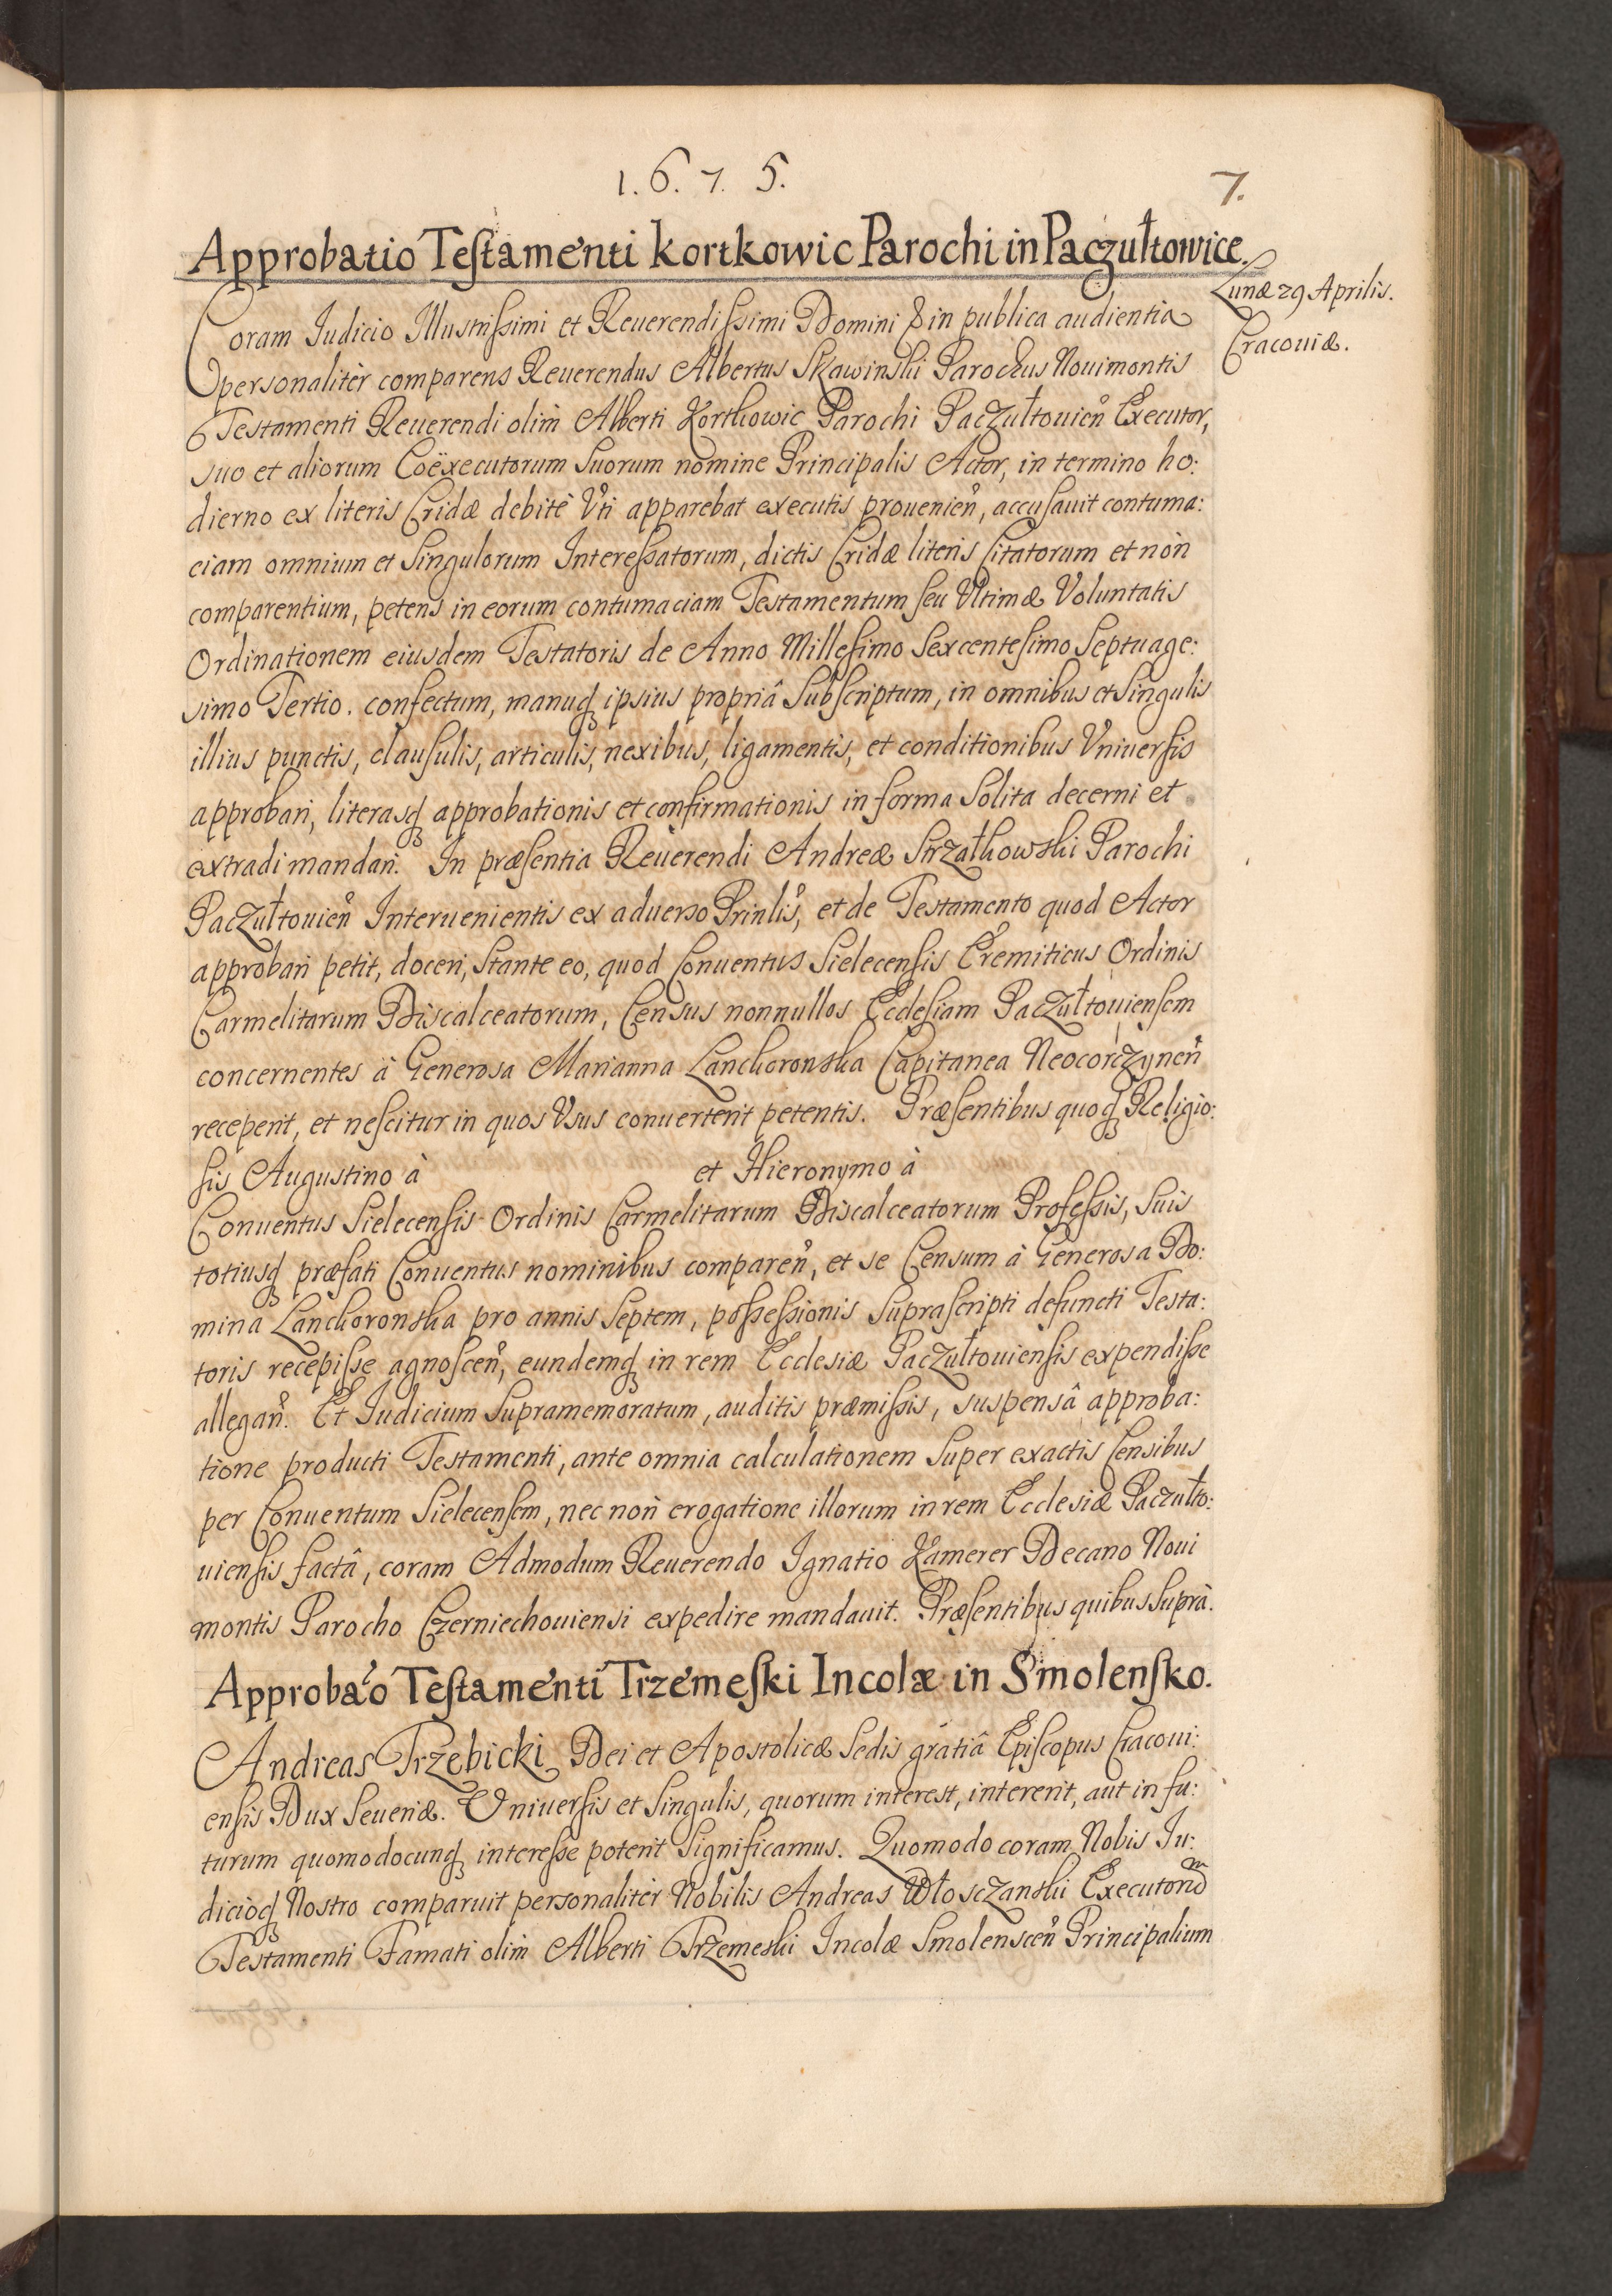 1. 6. 7. 5.
7.
Approbatio Testamenti Kortkowic Parochi in Paczułtowice.
Lunæ 29 Aprilis.
Cracouiæ.
Coram Iudicio Illustrissimi et Reuerendissimi Domini & in publica audientia
personalitèr comparens Reuerendus Albertus Skawinski Parochus Nouimontis
Testamenti Reuerendi olim Alberti Kortkowic Parochi Paczułtouien Executor,
suo et aliorum Coëxecutorum suorum nomine Principalis Actor, in termino ho:
dierno ex literis Cridæ debitè Vti apparebat executis prouenien, accusauit contuma:
ciam omnium et singulorum Interessatorum, dictis Cridæ literis Citatorum et non
comparentium, petens in eorum contumaciam Testamentum seu Vltimæ Voluntatis
Ordinationem eiusdem Testatoris de Anno Millesimo Sexcentesimo Septuage:
simo Tertio. confectum, manuq ipsius propriâ subscriptum, in omnibus et singulis
illius punctis, clausulis, articulis, nexibus, ligamentis, et conditionibus Vniuersis
approbari, literasq approbationis et confirmationis in forma solita decerni et
extradi mandari. In præsentia Reuerendi Andreæ Strzałkowski Parochi
Paczułtouien Interuenientis ex aduerso Prinlis, et de Testamento quod Actor
approbari petit, doceri, stante eo, quod Conuentus Sielecensis Eremiticus Ordinis
Carmelitarum Discalceatorum, Census nonnullos Ecclesiam Paczułtouiensem
concernentes à Generosa Marianna Lanckoronska Capitanea Neocorczynen
receperit, et nescitur in quos Vsus conuerterit petentis. Præsentibus quoq Religio:
sis Augustino à et Hieronymo à
Conuentus Sielecensis Ordinis Carmelitarum Discalceatorum Professis, suis
totiusq præfati Conuentus nominibus comparen, et se Censum à Generosa Do:
mina Lanckoronska pro annis septem, possessionis suprascripti defuncti Testa:
toris recepisse agnoscen, eundemq in rem Ecclesiæ Paczułtouiensis expendisse
allegan. Et Iudicium supramemoratum, auditis præmissis, suspensâ approba:
tione producti Testamenti, ante omnia calculationem super exactis Censibus
per Conuentum Sielecensem, nec non erogatione illorum in rem Ecclesiæ Paczułto:
uiensis factâ, coram Admodum Reuerendo Ignatio Kamerer Decano Noui
montis Parocho Czerniechouiensi expedire mandauit. Præsentibus quibus suprà.
Approbao Testamenti Trzemeski Incolæ in Smolensko.
Andreas Trzebicki Dei et Apostolicæ Sedis gratiâ Episcopus Cracoui:
ensis Dux Seueriæ. Vniuersis et singulis, quorum interest, intererit, aut in fu:
turum quomodocunq interesse poterit significamus. Quomodo coram Nobis Iu:
dicioq Nostro comparuit personalitèr Nobilis Andreas Włosczanski Executorum
Testamenti Famati olim Alberti Trzemeski Incolæ Smolenscen Principalium